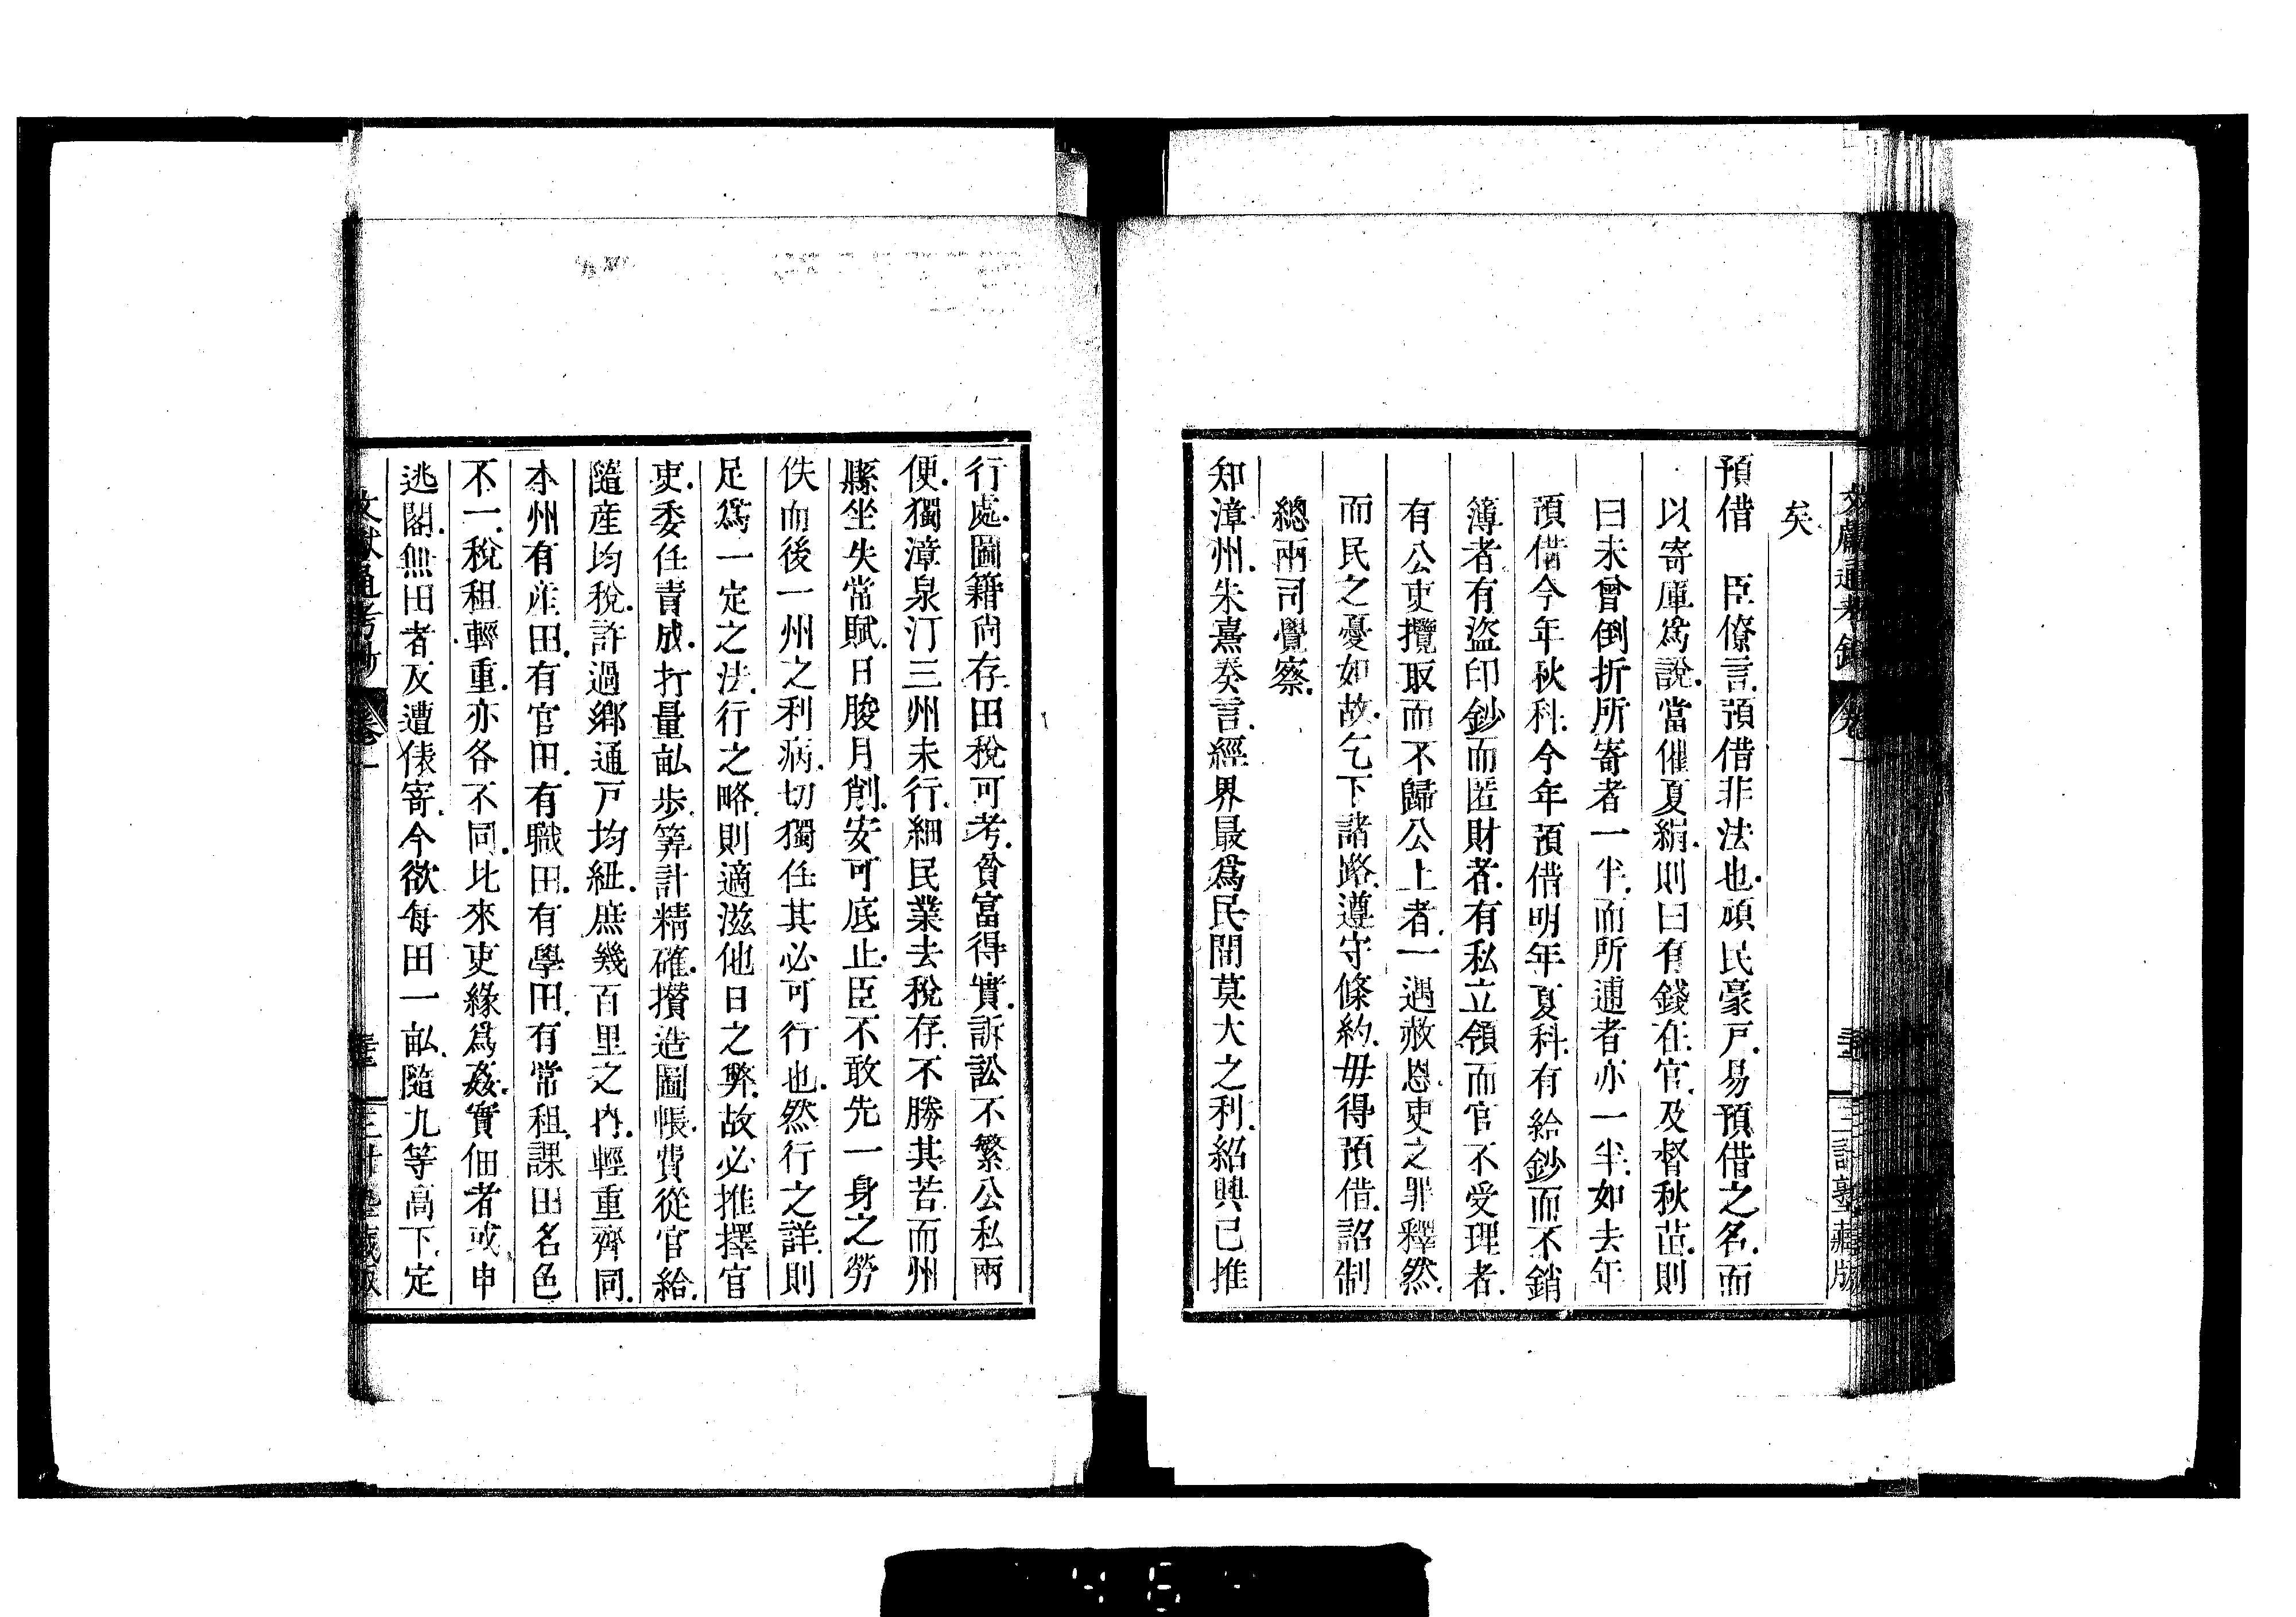 矣
預借　臣僚言預借非法也頑民豪戸易預借之名而
以寄庫爲說當催夏絹則曰有錢在官及督秋苗則
曰未曾倒折所寄者一半而所逋者亦一半如去年
預借今年秋科今年預借明年夏科有給鈔而不銷
簿者有盜印鈔而匿財者有私立領而官不受理者
有公吏攬取而不歸公上者一遇赦恩吏之罪釋然
而民之憂如故乞下諸路遵守條約毋得預借詔制
總兩司覺察
知漳州朱熹奏言經界最爲民間莫大之利紹興已推
行處圖籍尚存田稅可考貧富得實訴訟不繁公私兩
便獨漳泉汀三州未行細民業去稅存不勝其苦而州
縣坐失常賦日朘月削安可底止臣不敢先一身之勞
佚而後一州之利病切獨任其必可行也然行之詳則
足爲一定之法行之略則適滋他日之弊故必推擇官
吏委任責成打量畝步筭計精確攢造圖帳費從官給
隨産均稅許過鄉通戸均紐庶幾百里之內輕重齊同
本州有産田有官田有職田有學田有常租課田名色
不一稅租輕重亦各不同比來吏緣爲姦實佃者或申
逃閣無田者反遭俵寄今欲每田一畝隨九等高下定